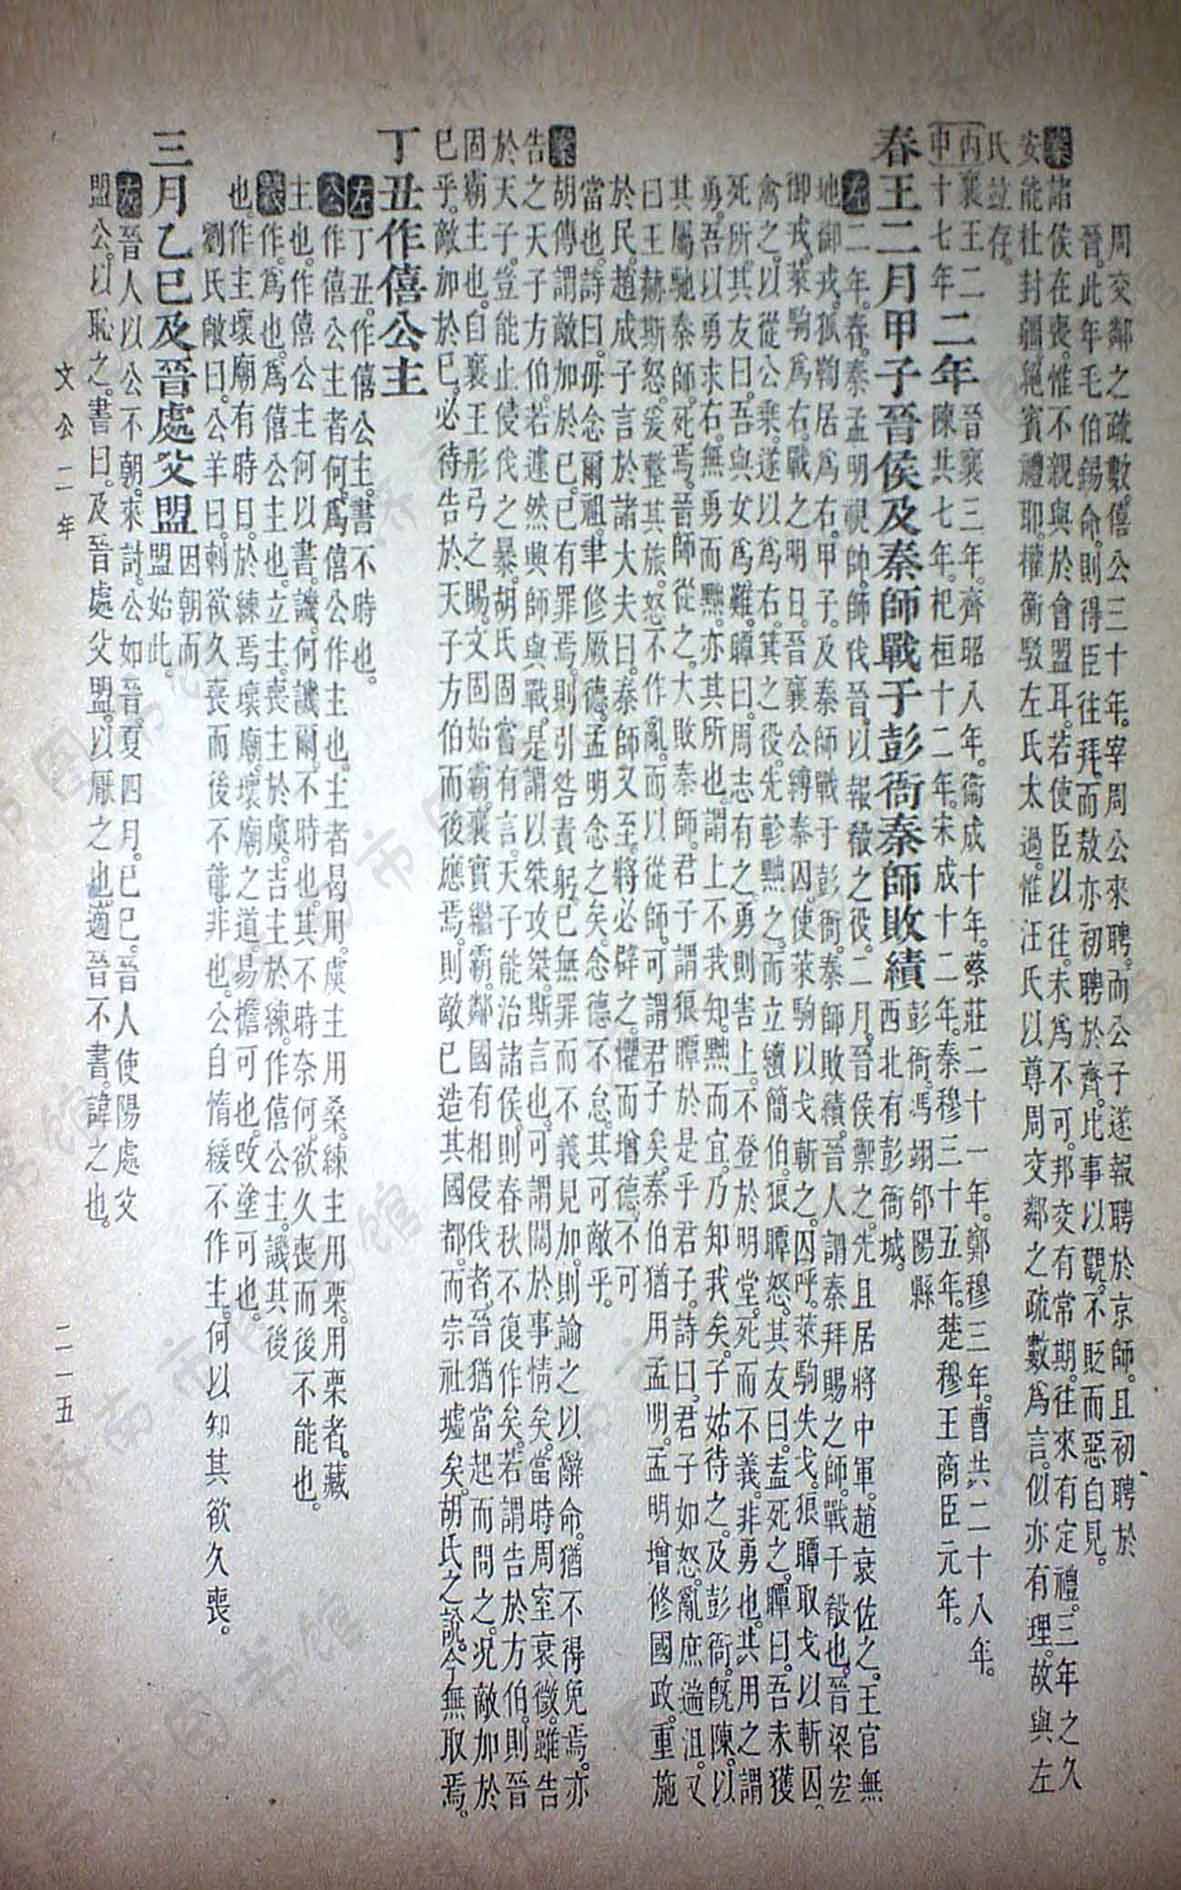 周交鄰之疏數僖公三十年宰周公來聘而公子遂報聘於京師且初聘於
晉此年毛伯錫命則得臣往拜而敖亦初聘於齊比事以觀不貶而惡自見
案諸侯在喪惟不親與於會盟耳若使臣以往未為不可邦交有常期往來有定禮三年之久
安能杜封疆絕賓禮耶權衡駁左氏太過惟汪氏以尊周交鄰之疏數為言似亦有理故與左
氏竝存
丙申襄王二十七年
二年
晉襄三年齊昭八年衞成十年蔡莊二十一年鄭穆三年曹共二十八年
陳共七年杞桓十二年宋成十二年秦穆三十五年楚穆王商臣元年
春王二月甲子晉侯及秦師戰于彭衙秦師敗績
彭衙馮翊郃陽縣
西北有彭衙城
左二年春秦孟明視帥師伐晉以報殽之役二月晉侯禦之先且居將中軍趙衰佐之王官無
地御戎狐鞫居為右甲子及秦師戰于彭衙秦師敗績晉人謂秦拜賜之師戰于殽也晉梁宏
御戎萊駒為右戰之明日晉襄公縛秦囚使萊駒以戈斬之囚呼萊駒失戈狼瞫取戈以斬囚
禽之以從公乘遂以為右箕之役先軫黜之而立續簡伯狼瞫怒其友曰盍死之瞫曰吾未獲
死所其友曰吾與女為難瞫曰周志有之勇則害上不登於明堂死而不義非勇也共用之謂
勇吾以勇求右無勇而黜亦其所也謂上不我知黜而宜乃知我矣子姑待之及彭衙既陳以
其屬馳秦師死焉晉師從之大敗秦師君子謂狼瞫於是乎君子詩曰君子如怒亂庶遄沮又
曰王赫斯怒爰整其旅怒不作亂而以從師可謂君子矣秦伯猶用孟明孟明增修國政重施
於民趙成子言於諸大夫曰秦師又至將必辟之懼而增德不可
當也詩曰毋念爾祖聿修厥德孟明念之矣念德不怠其可敵乎
案胡傳謂敵加於已已有罪焉則引咎責躬已無罪而不義見加則諭之以辭命猶不得免焉亦
告之天子方伯若遽然興師與戰是謂以桀攻桀斯言也可謂闊於事情矣當時周室衰微雖告
於天子豈能止侵伐之暴胡氏固嘗有言天子能治諸侯則春秋不復作矣若謂告於方伯則晉
固霸主也自襄王彤弓之賜文固始霸襄實繼霸鄰國有相侵伐者晉猶當起而問之況敵加於
已乎敵加於已必待告於天子方伯而後應焉則敵已造其國都而宗社墟矣胡氏之說今無取焉
丁丑作僖公主
左丁丑作僖公主書不時也
公作僖公主者何為僖公作主也主者曷用虞主用桑練主用栗用栗者藏
主也作僖公主何以書譏何譏爾不時也其不時奈何欲久喪而後不能也
穀作為也為僖公主也立主喪主於虞吉主於練作僖公主譏其後
也作主壞廟有時日於練焉壞廟壞廟之道易檐可也改塗可也
劉氏敞曰公羊曰刺欲久喪而後不能非也公自惰緩不作主何以知其欲久喪
三月乙巳及晉處父盟
因朝而
盟始此
左晉人以公不朝來討公如晉夏四月已巳晉人使陽處父
盟公以恥之書曰及晉處父盟以厭之也適晉不書諱之也
文公二年
二一五